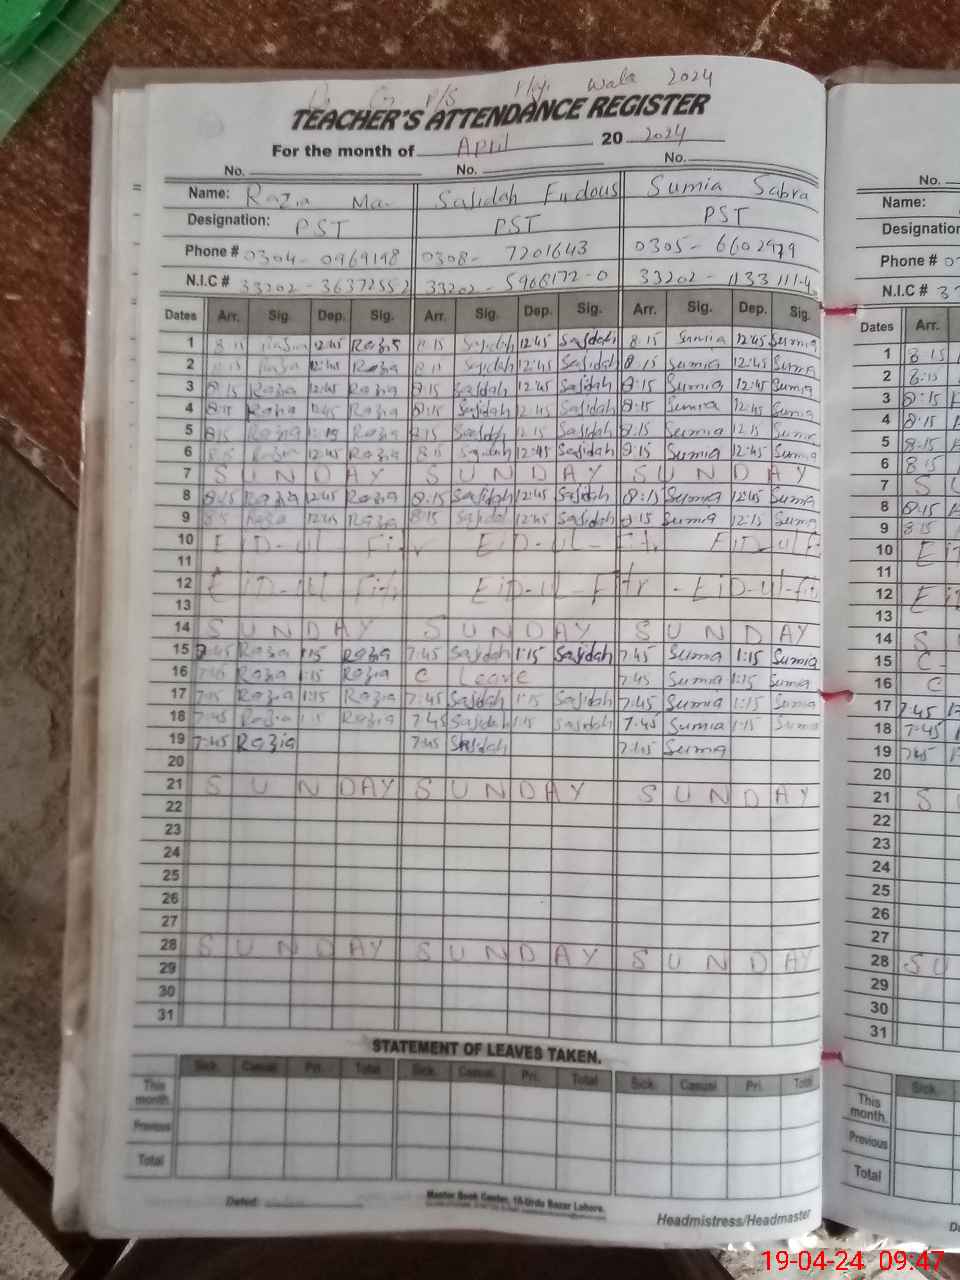 P/S Wala 2024
TEACHER'S ATTENDANCE REGISTER
For the month of April 20 2024
No. No. No. No.
Name: Razia Sajidah Firdous Sumia Sabra Name:
Designation: PST PST PST Designation
Phone # 0304-0969198 0308-7201643 0305-6602979 Phone #
N.I.C # 33202-36372552 33202-5968172-0 33202-1133111-4 N.I.C #
Dates Arr. Sig. Dep. Sig. Arr. Sig. Dep. Sig. Arr. Sig. Dep. Sig. Dates Arr.
1 8:15 Razia 12:45 Razia 8:15 Sajidah 12:45 Sajidah 8:15 Sumia 12:45 Sumia 1 8:15
2 8:15 Razia 12:45 Razia 8:15 Sajidah 12:45 Sajidah 8:15 Sumia 12:45 Sumia 2 8:15
3 8:15 Razia 12:45 Razia 8:15 Sajidah 12:45 Sajidah 8:15 Sumia 12:45 Sumia 3 8:15
4 8:15 Razia 12:45 Razia 8:15 Sajidah 12:45 Sajidah 8:15 Sumia 12:45 Sumia 4 8:15
5 8:15 Razia 12:15 Razia 8:15 Sajidah 12:15 Sajidah 8:15 Sumia 12:15 Sumia 5 8:15
6 8:15 Razia 12:45 Razia 8:15 Sajidah 12:45 Sajidah 8:15 Sumia 12:45 Sumia 6 8:15
7 SUNDAY SUNDAY SUNDAY 7 S
8 8:15 Razia 12:45 Razia 8:15 Sajidah 12:45 Sajidah 8:15 Sumia 12:45 Sumia 8 8:15
9 8:15 Razia 12:45 Razia 8:15 Sajidah 12:45 Sajidah 8:15 Sumia 12:15 Sumia 9 8:15
10 EID-UL Fitr EID-UL-Fitr EID-UL F 10
11 11
12 EiD-Ul Fitr EiD-UL-Fitr - EiD-Ul-Fit 12
13 13
14 SUNDAY SUNDAY SUNDAY 14 S
15 7:45 Razia 1:15 Razia 7:45 Sajidah 1:15 Sajidah 7:45 Sumia 1:15 Sumia 15 C-
16 7:45 Razia 1:15 Razia C Leave 7:45 Sumia 1:15 Sumia 16 C
17 7:45 Razia 1:15 Razia 7:45 Sajidah 1:15 Sajidah 7:45 Sumia 1:15 Sumia 17 7:45
18 7:45 Razia 1:15 Razia 7:45 Sajidah 1:15 Sajidah 7:45 Sumia 1:15 Sumia 18 7:45
19 7:45 Razia 7:45 Sajidah 7:45 Sumia 19 7:45
20 20
21 SUNDAY SUNDAY SUNDAY 21 S
22 22
23 23
24 24
25 25
26 26
27 27
28 SUNDAY SUNDAY SUNDAY 28 SU
29 29
30 30
31 31
STATEMENT OF LEAVES TAKEN.
Sick. Casual Pri. Total Sick. Casual Pri. Total Sick. Casual Pri. Total Sick
This month This month.
Previous Previous
Total Total
Dated:
Master Book Center, 10-Urdu Bazar Lahore.
Headmistress/Headmaster
19-04-24 09:47